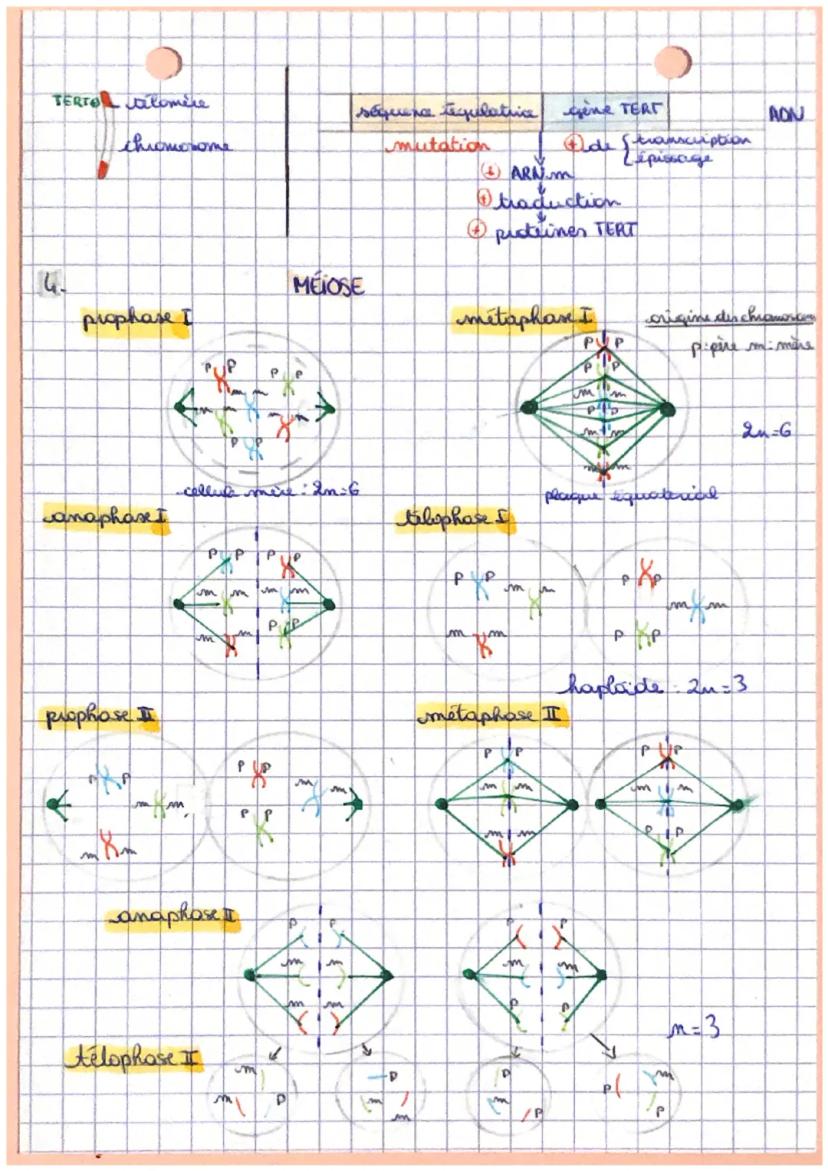 TERT⊕ télomère
chromosome
séquence régulatrice gène TERT ADN
mutation ⊕ de { transcription
épissage
⊕ ARNm
⊕ traduction
⊕ protéines TERT
4. MÉIOSE
prophase I métaphase I origine des chromosom
p:père m:mère
P P P P
m m m m
P P
P P
P P
m m
P P
m m
m m
2n=6
cellule mère : 2n=6 plaque équatorial
anaphase I télophase I
P P P P
m m m m
m m P P
P P m m
m m
P P
m m
P P
haploïde : 2n=3
prophase II métaphase II
P P
m m
m m
P P
m m
P P
P P
m m
m m
P P
m m
P P
anaphase II
P P
m m
m m
P P
m m
P P
n=3
télophase II
m
m P
P
m
m
P
m
P
P m
P